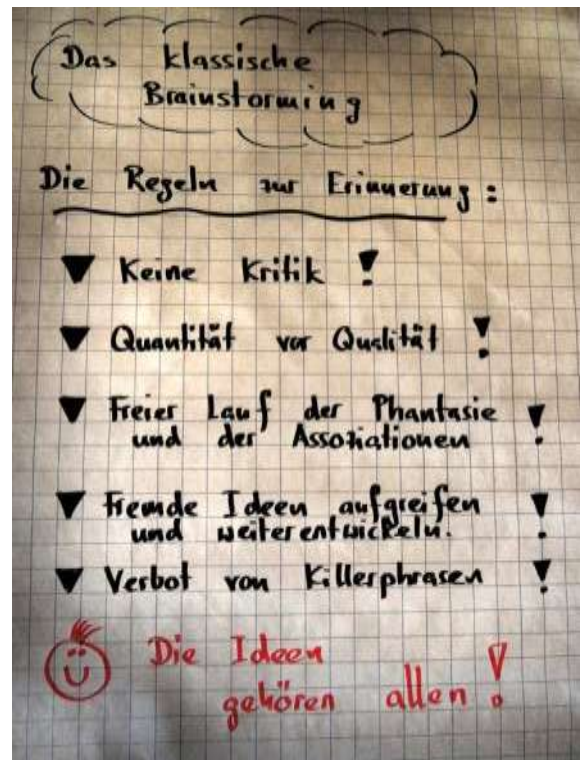 Das klassische
Brainstorming
Die Regeln zur Erinnerung:
Keine Kritik!
Quantität vor Qualität!
Freier Lauf der Phantasie
und der Assoziationen!
Fremde Ideen aufgreifen
und weiterentwickeln.!
Verbot von Killerphrasen!
Die Ideen
gehören allen!